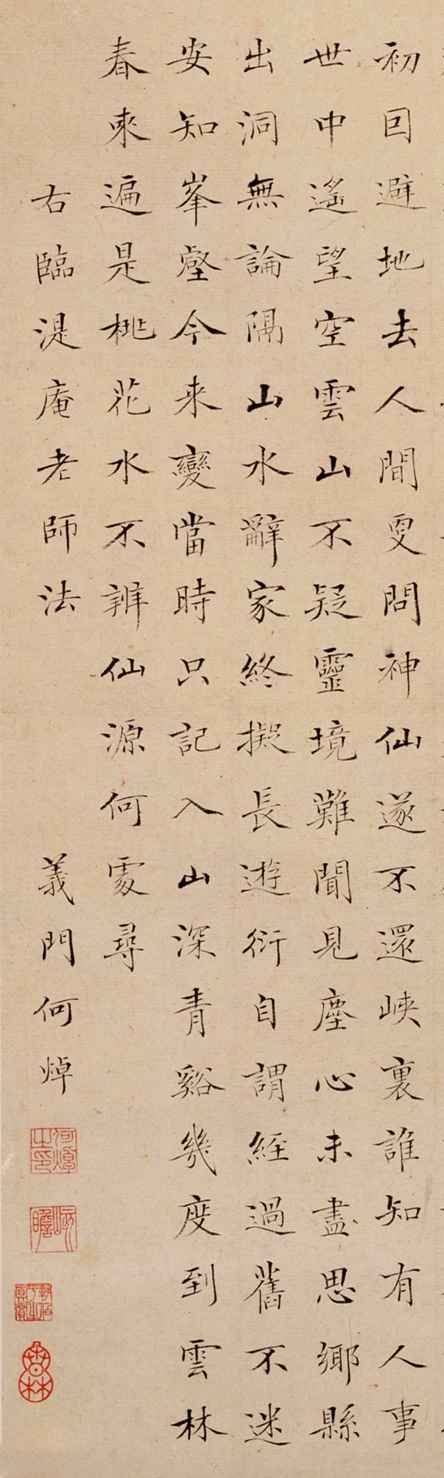 初因避地去人間更問神仙遂不還峽裏誰知有人事
世中遙望空雲山不疑靈境難聞見塵心未盡思鄉縣
出洞無論隔山水辭家終擬長遊衍自謂經過舊不迷
安知峯壑今来變當時只記入山深青谿幾度到雲林
春來遍是桃花水不辨仙源何處尋
右臨湜庵老師法
義門何焯
何焯之印
屺瞻